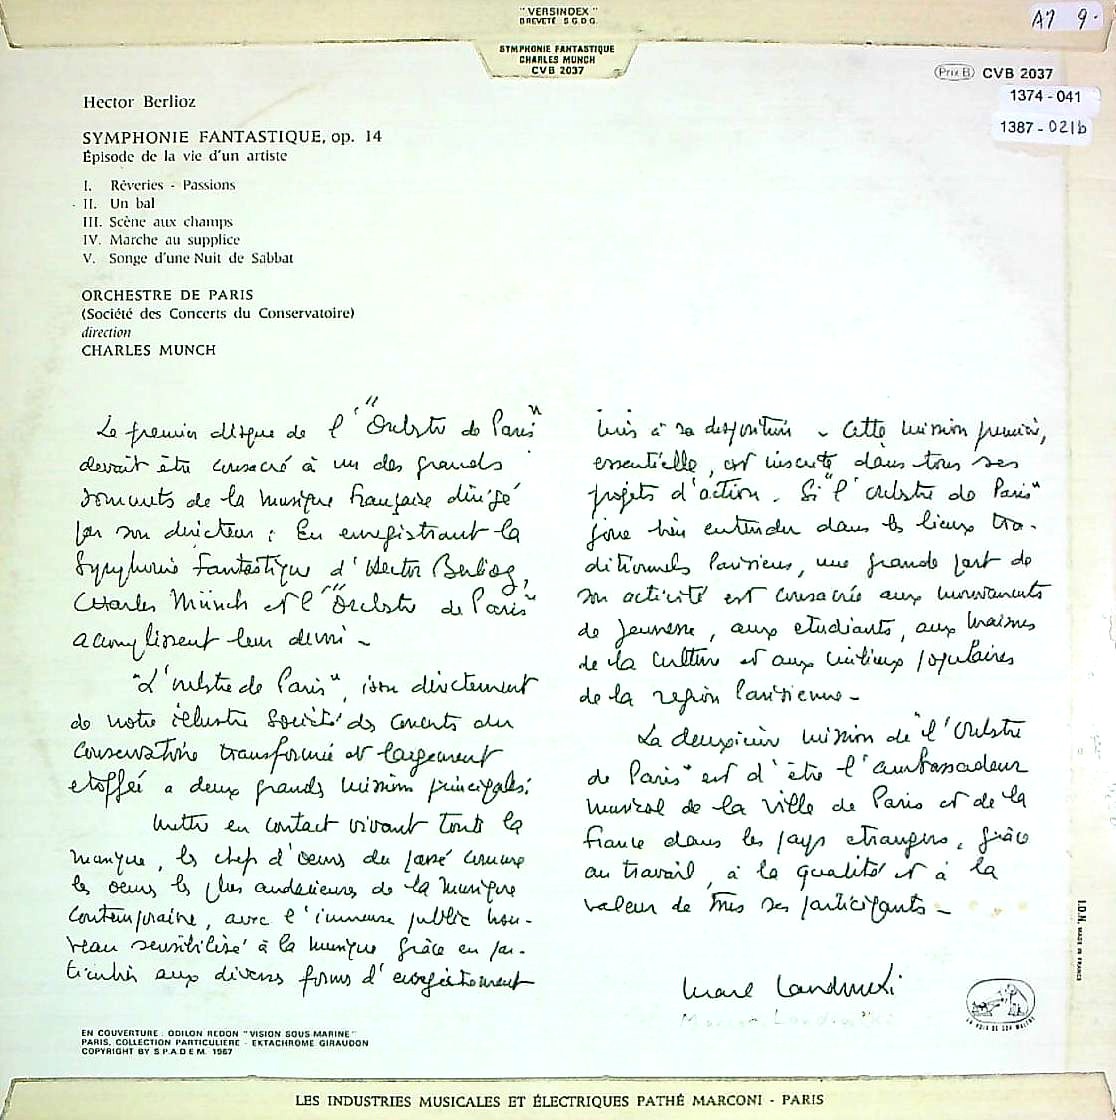 " VERSINDEX "
BREVETÉ S.G.D.G.
A7 9.
SYMPHONIE FANTASTIQUE
CHARLES MUNCH
CVB 2037
Prix B CVB 2037
1374 - 041
1387 - 021b
Hector Berlioz
SYMPHONIE FANTASTIQUE, op. 14
Épisode de la vie d'un artiste
I. Rêveries - Passions
II. Un bal
III. Scène aux champs
IV. Marche au supplice
V. Songe d'une Nuit de Sabbat
ORCHESTRE DE PARIS
(Société des Concerts du Conservatoire)
direction
CHARLES MUNCH
Le premier disque de l'"Orchestre de Paris"
devait être consacré à un des grands
sommets de la musique française dirigé
par son directeur : En enregistrant la
Symphonie Fantastique d'Hector Berlioz,
Charles Münch et l'"Orchestre de Paris"
accomplissent leur devoir -
"L'orchestre de Paris", issu directement
de notre illustre Société des Concerts du
Conservatoire transformée et largement
etoffée a deux grandes missions principales :
mettre en contact vivant toute la
musique, les chefs d'oeuvres du passé comme
les oeuvres les plus audacieuses de la musique
contemporaine, avec l'immense public nou-
veau sensibilisé à la musique grâce en par-
ticulier aux diverses formes d'enregistrement
mis à sa disposition - Cette mission première,
essentielle, est inscrite dans tous ses
projets d'action. Si "l'orchestre de Paris"
joue bien entendu dans les lieux tra-
ditionnels Parisiens, une grande part de
son activité est consacrée aux mouvements
de jeunesse, aux etudiants, aux maisons
de la culture et aux milieux populaires
de la region Parisienne -
La deuxième mission de "l'Orchestre
de Paris" est d'être l'ambassadeur
musical de la ville de Paris et de la
France dans les pays etrangers, grâce
au travail, à la qualité et à la
valeur de tous ses participants -
Marcel Landowski
EN COUVERTURE : ODILON REDON "VISION SOUS MARINE"
PARIS, COLLECTION PARTICULIERE - EKTACHROME GIRAUDON
COPYRIGHT BY S.P.A.D.E.M. 1967
LA VOIX DE SON MAITRE
I.D.N. MADE IN FRANCE
LES INDUSTRIES MUSICALES ET ÉLECTRIQUES PATHÉ MARCONI - PARIS